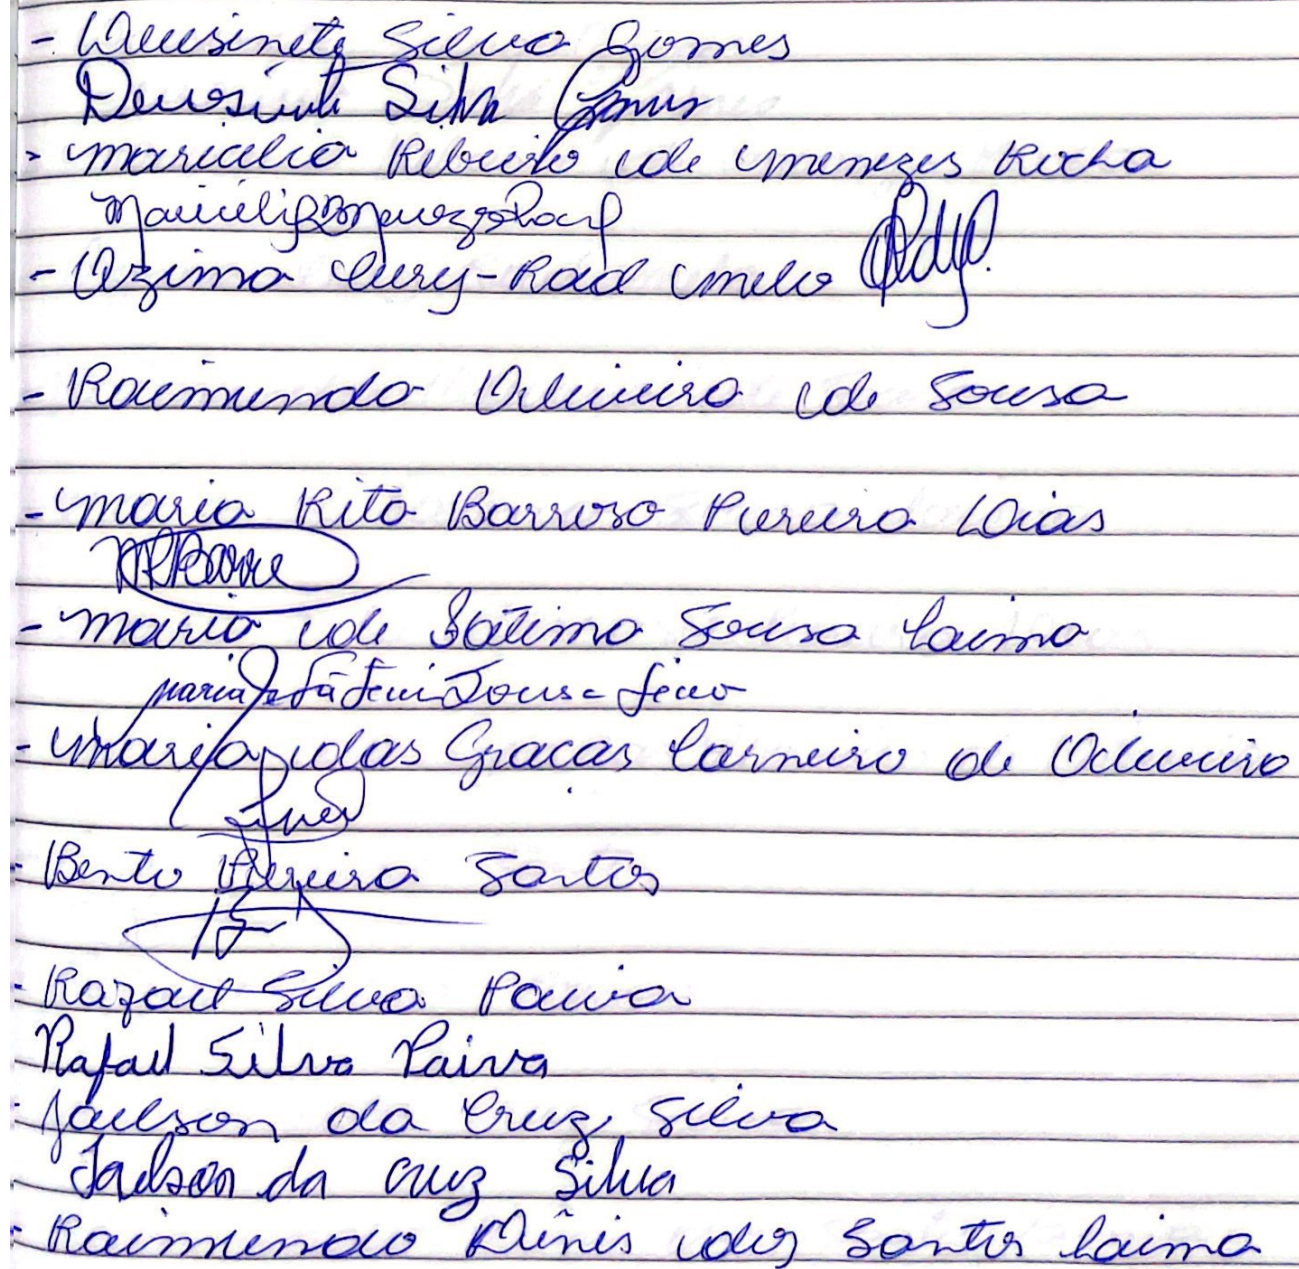 - Deusinete Silva Gomes
Deusinete Silva Gomes
- Maricélia Ribeiro de Menezes Rocha
- Ozima Cury-Rad Melo
- Raimundo Oliveira de Sousa
- Maria Rita Barroso Pereira Dias
- Maria de Fátima Sousa Caima
Maria de Fátima Sousa
- Maria das Graças Carneiro de Oliveira
- Bento Pereira Santos
- Rafael Silva Paiva
Rafael Silva Paiva
- Jaelson da Cruz Silva
Jaelson da Cruz Silva
- Raimundo Dinis dos Santos Caima